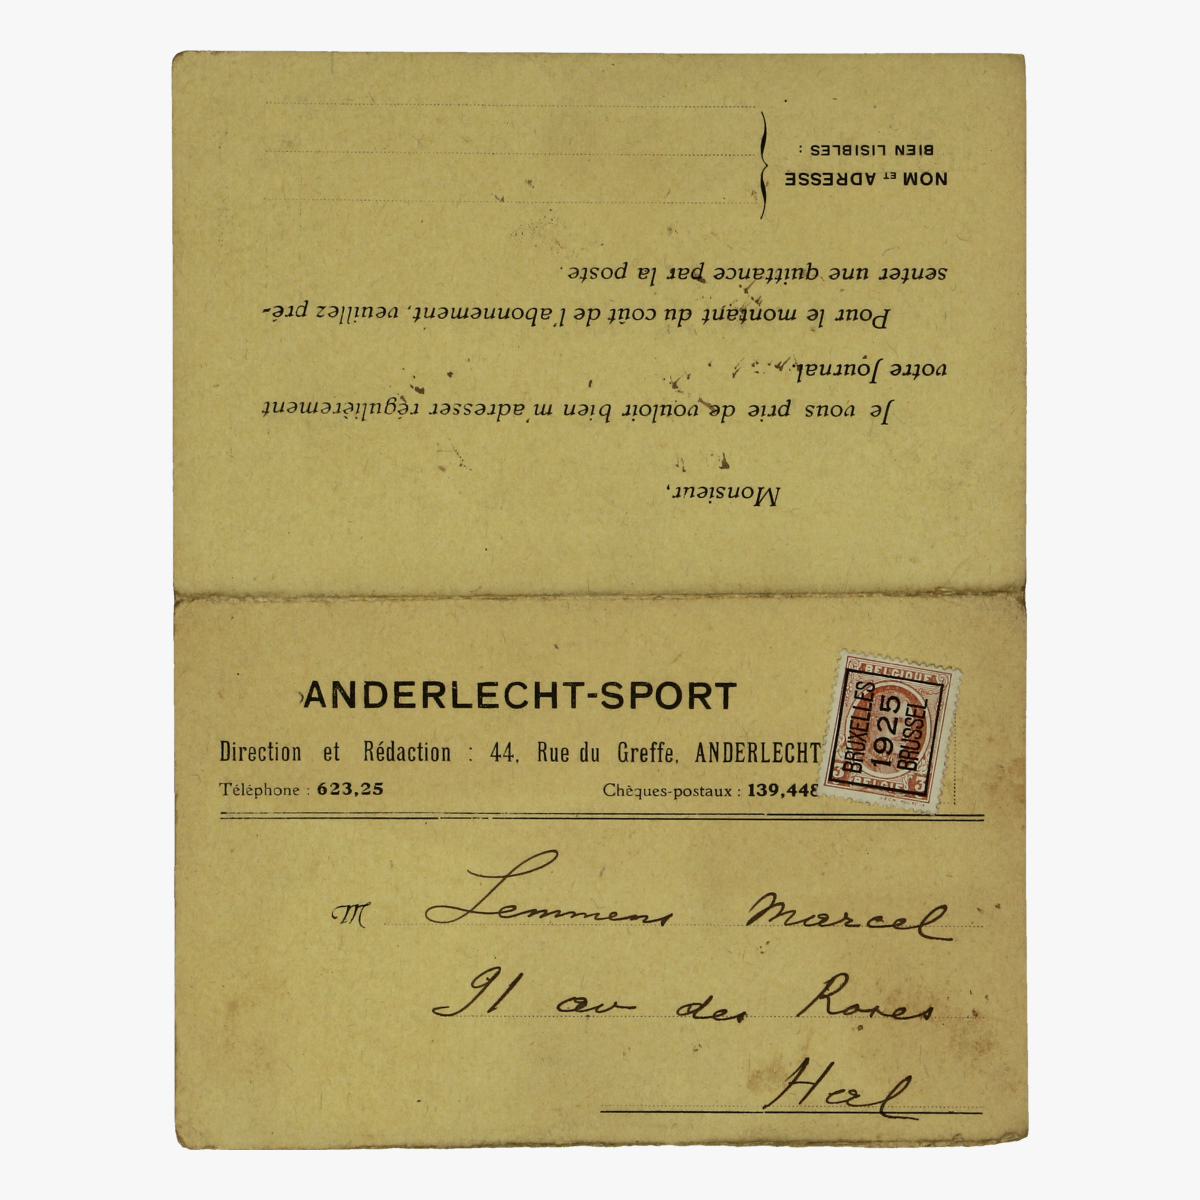 Monsieur,
Je vous prie de vouloir bien m'adresser régulièrement
votre Journal.
Pour le montant du coût de l'abonnement, veuillez pré-
senter une quittance par la poste.
NOM ET ADRESSE
BIEN LISIBLES :
ANDERLECHT-SPORT
Direction et Rédaction : 44, Rue du Greffe, ANDERLECHT
Téléphone : 623,25 Chèques-postaux : 139,448
BELGIQUE
BRUXELLES
1925
BRUSSEL
BELGIE
M Lemmens Marcel
91 av des Roses
Hal